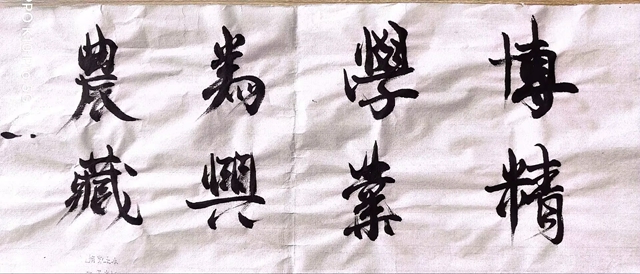 博精
學業
為興
農藏